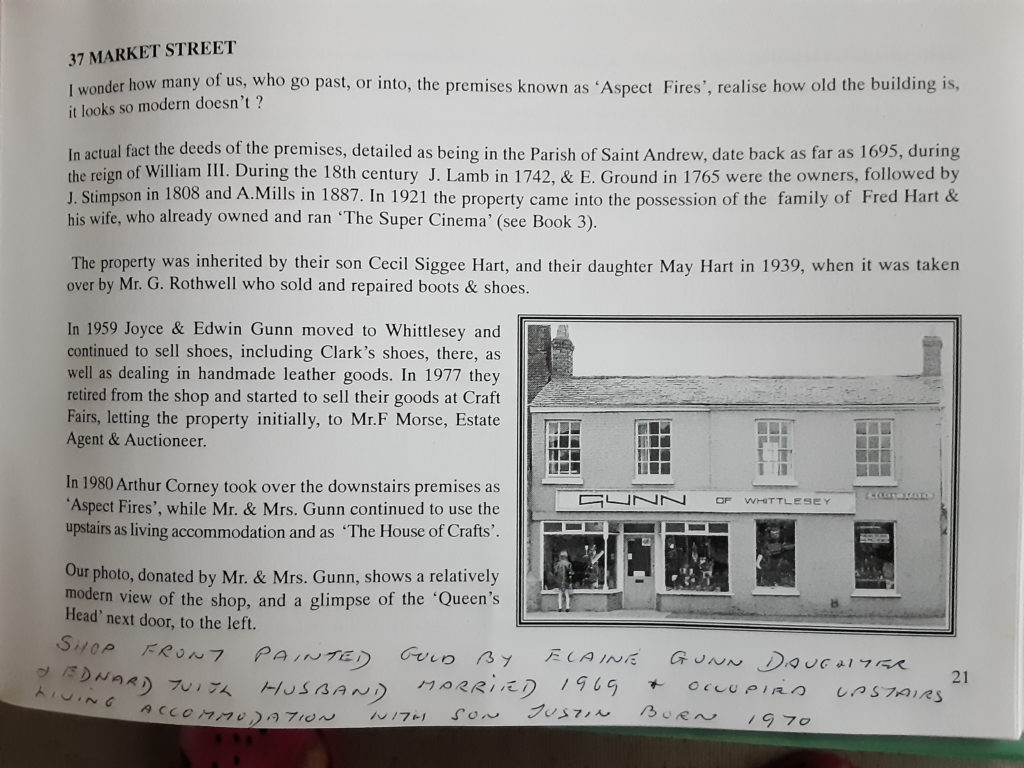 37 MARKET STREET
I wonder how many of us, who go past, or into, the premises known as ‘Aspect Fires’, realise how old the building is,
it looks so modern doesn't ?
In actual fact the deeds of the premises, detailed as being in the Parish of Saint Andrew, date back as far as 1695, during
the reign of William III. During the 18th century J. Lamb in 1742, & E. Ground in 1765 were the owners, followed by
J. Stimpson in 1808 and A.Mills in 1887. In 1921 the property came into the possession of the family of Fred Hart &
his wife, who already owned and ran ‘The Super Cinema’ (see Book 3).
The property was inherited by their son Cecil Siggee Hart, and their daughter May Hart in 1939, when it was taken
over by Mr. G. Rothwell who sold and repaired boots & shoes.
In 1959 Joyce & Edwin Gunn moved to Whittlesey and
continued to sell shoes, including Clark's shoes, there, as
well as dealing in handmade leather goods. In 1977 they
retired from the shop and started to sell their goods at Craft
Fairs, letting the property initially, to Mr.F Morse, Estate
Agent & Auctioneer.
In 1980 Arthur Corney took over the downstairs premises as
‘Aspect Fires’, while Mr. & Mrs. Gunn continued to use the
upstairs as living accommodation and as ‘The House of Crafts’.
Our photo, donated by Mr. & Mrs. Gunn, shows a relatively
modern view of the shop, and a glimpse of the ‘Queen's
Head’ next door, to the left.
GUNN OF WHITTLESEY
MARKET STREET
SHOP FRONT PAINTED GOLD BY ELAINE GUNN DAUGHTER
& EDWARD WITH HUSBAND MARRIED 1969 + OCCUPIED UPSTAIRS
LIVING ACCOMMODATION WITH SON JUSTIN BORN 1970
21